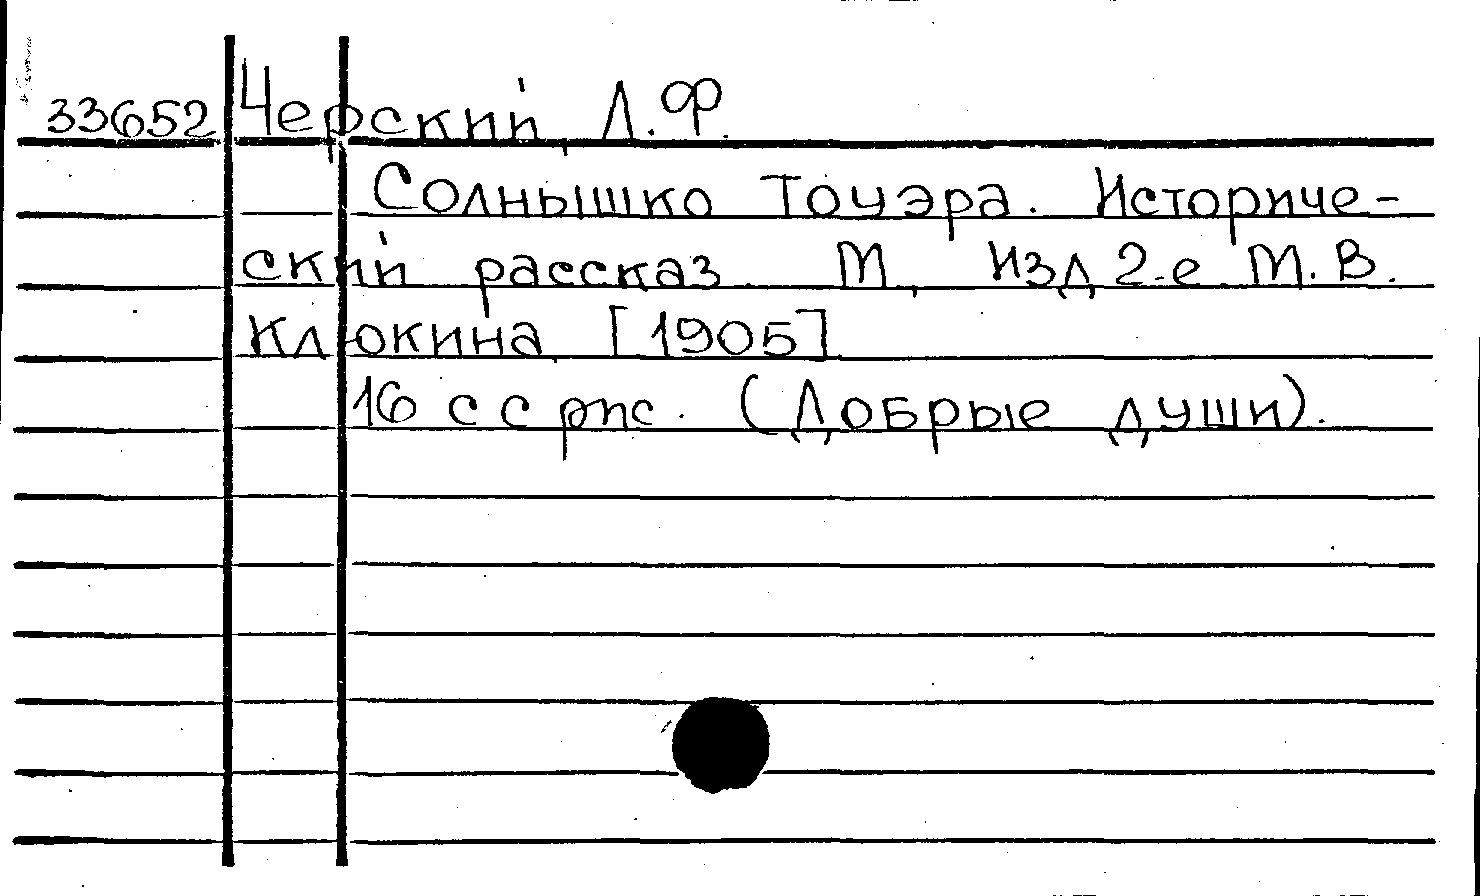 33652 Черский, Л.Ф.
Солнышко Тоуэра. Историче-
ский рассказ. М., Изд 2-е М.В.
Клюкина, [1905]
16 с с рис. (Добрые души).